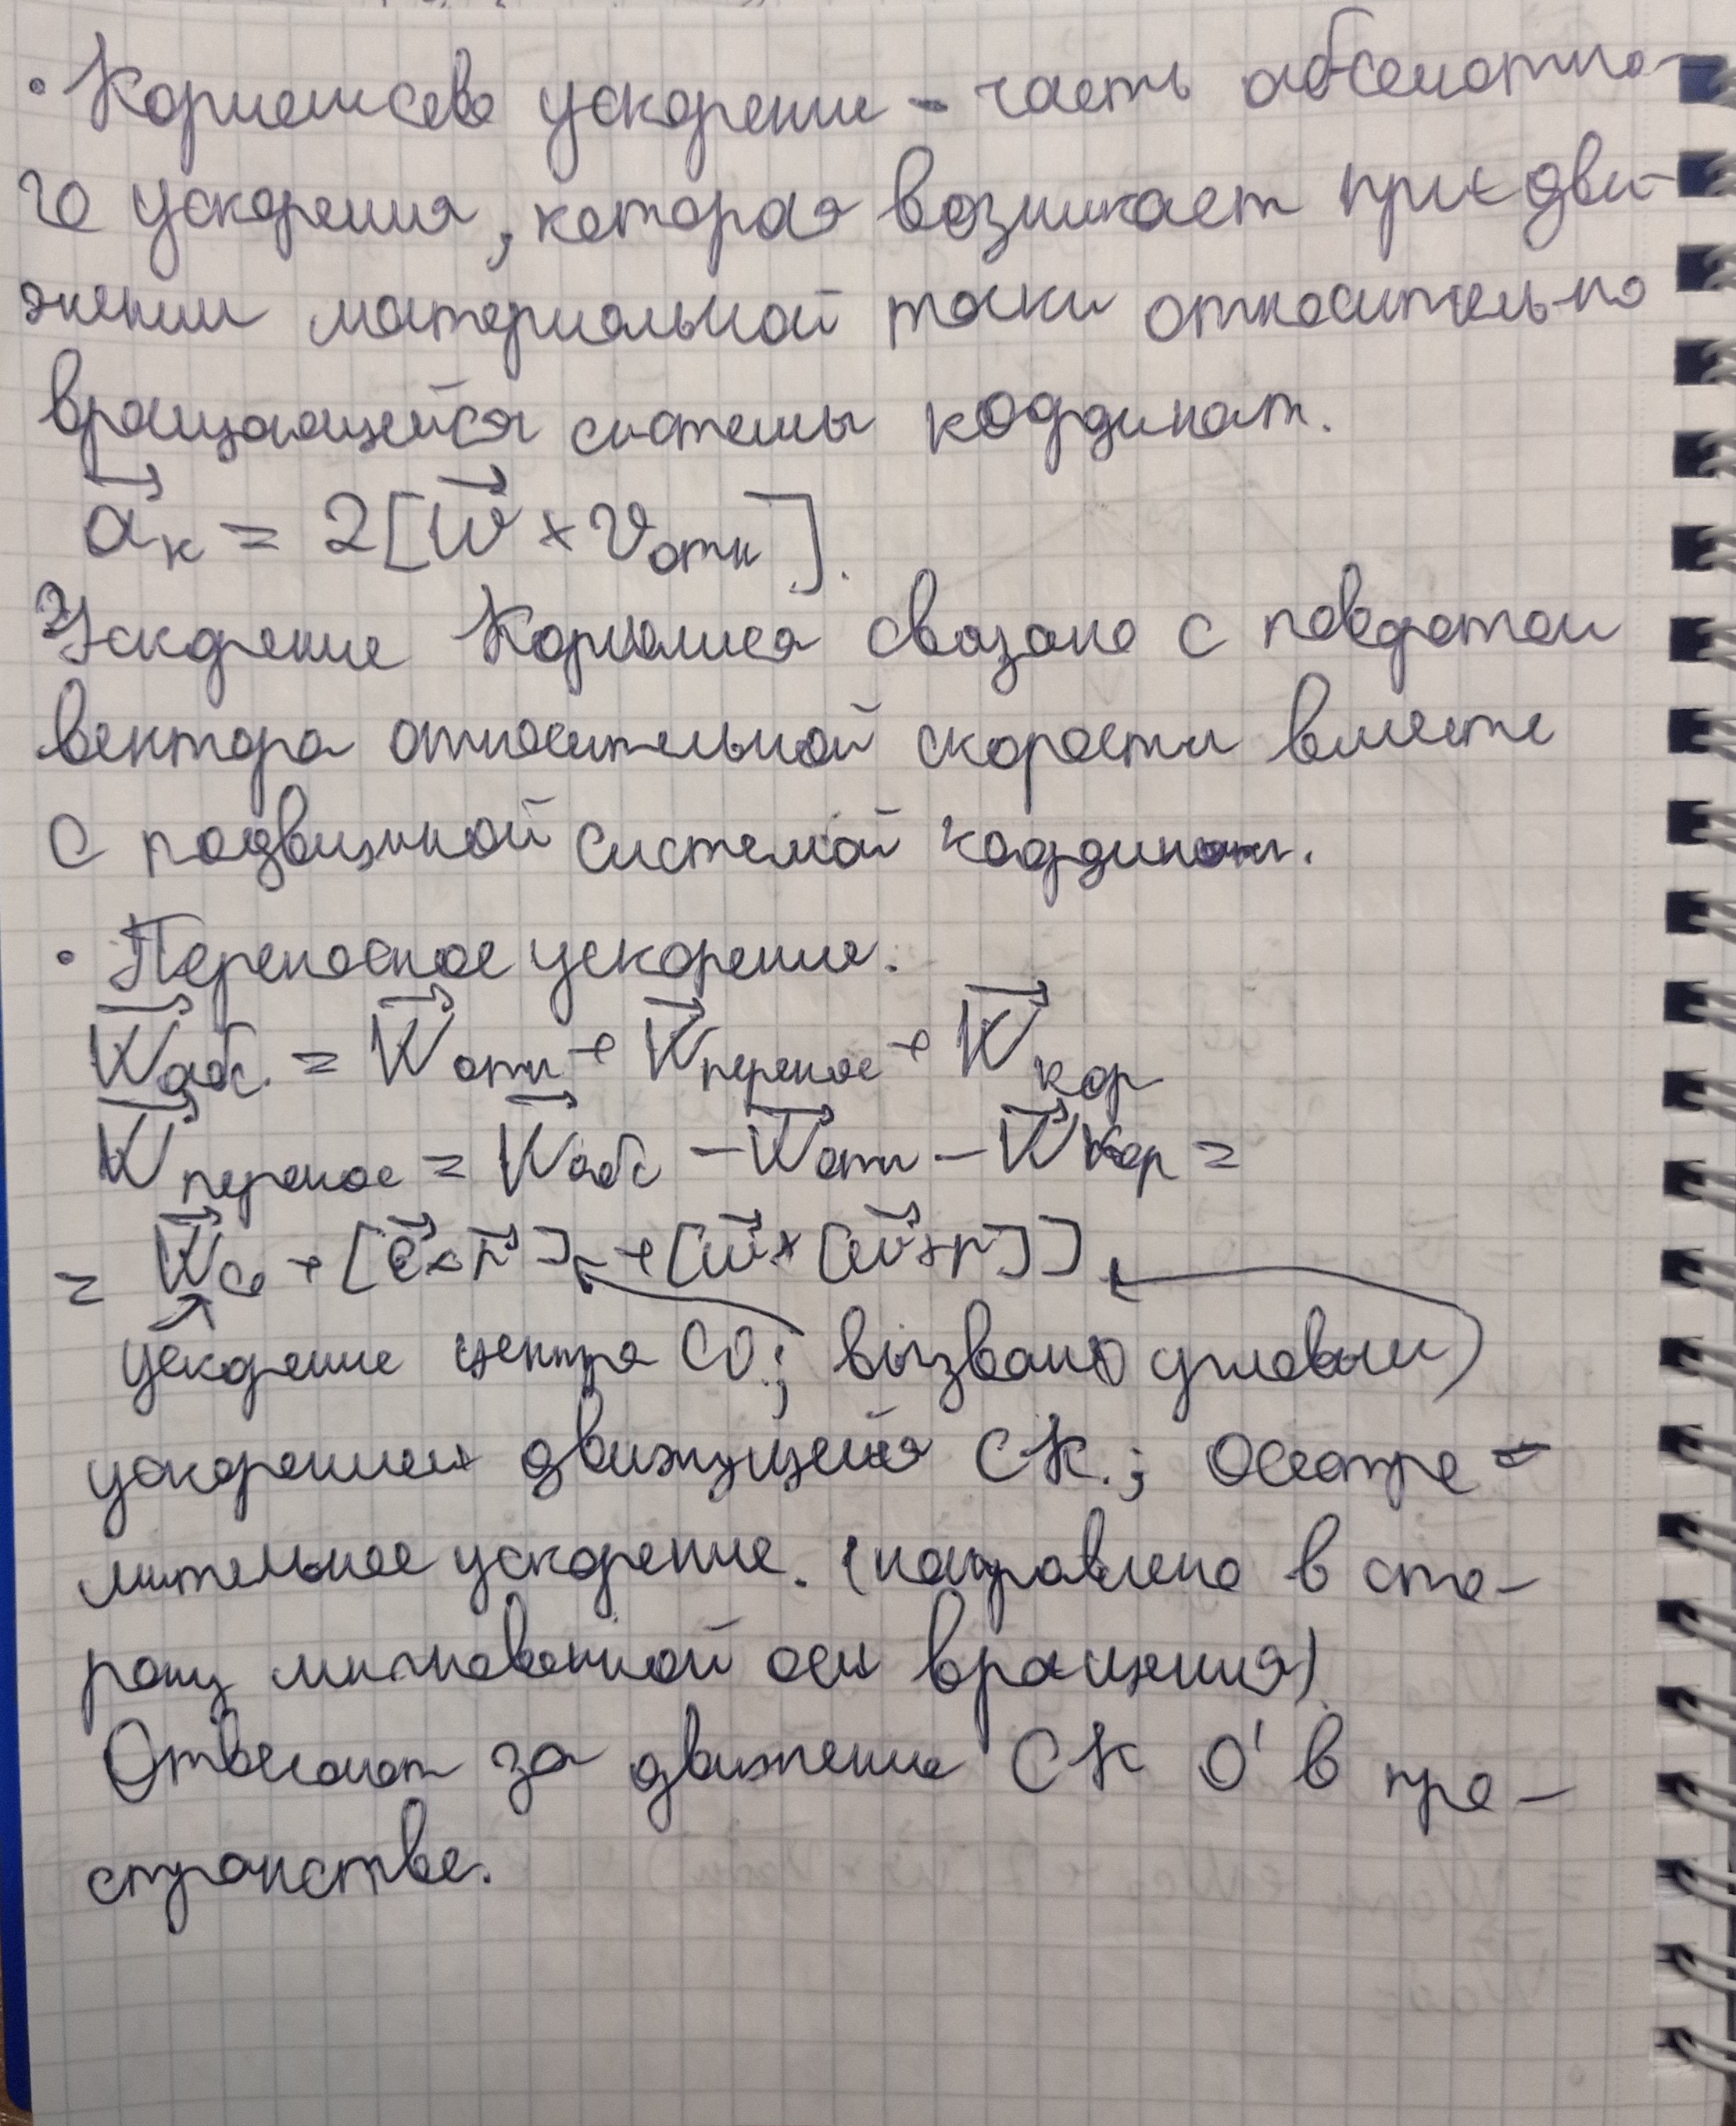 • Кориолисово ускорение - часть абсолютно-
го ускорения, которая возникает при дви-
жении материальной точки относительно
вращающейся системы координат.
a⃗к = 2[w⃗ × vотн].
Ускорение Кориолиса связано с поворотом
вектора относительной скорости вместе
с подвижной системой координат.
• Переносное ускорение.
W⃗абс. = W⃗отн + W⃗перенос + W⃗кор
W⃗перенос = W⃗абс − W⃗отн − W⃗кор =
= W⃗о + [ε⃗ × r⃗] + [w⃗ × [w⃗ × r]]
ускорение центра СО; вызвано угловым
ускорением движущейся СК.; осестре-
мительное ускорение. (направлено в сто-
рону мгновенной оси вращения)
Отвечают за движение СК O' в про-
странстве.